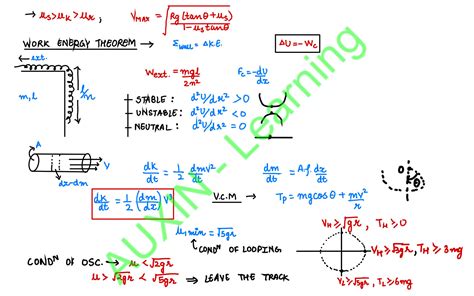 → μs > μk > μr, VMAX = √(Rg(tanθ + μs) / 1 - μs tanθ)
WORK ENERGY THEOREM → Σwall = ΔK.E. ΔU = -Wc
ext.
m, l l/n
Wext. = mgl / 2n² Fc = -dU / dx
STABLE : d²U/dx² > 0
UNSTABLE : d²U/dx² < 0
NEUTRAL : d²U/dx² = 0
A V
dx-dm
dk/dt = 1/2 dmv²/dt dm/dt = A.ρ.dx/dt
dk/dt = 1/2 (dm/dx) V³ V.C.M → TP = mg cosθ + mv²/r
O θ
u, min = √5gr
CONDN OF LOOPING
COND'N OF OSC. → u < √2gr
u > √2gr < √5gr ⇒ LEAVE THE TRACK
VH ≥ √gr, TH ≥ 0
VH ≥ √3gr, TH ≥ 3mg
VL ≥ √5gr, TL ≥ 6mg
AUXIN - Learning